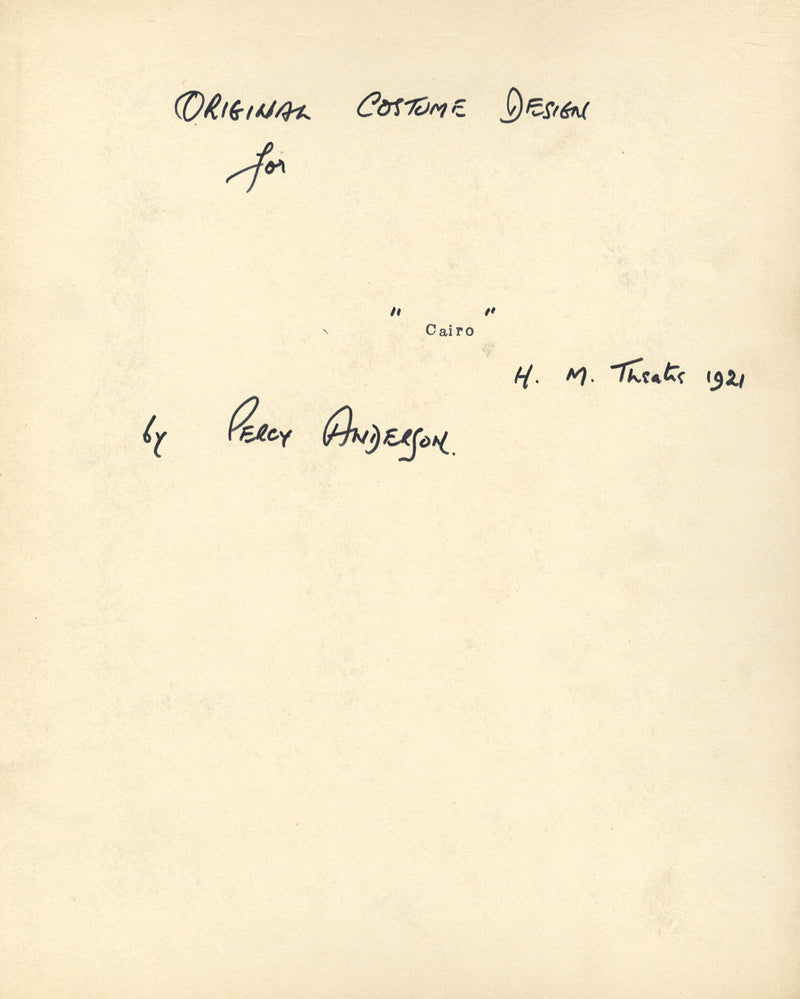 ORIGINAL COSTUME DESIGN
for
" Cairo "
H. M. Theatre 1921
by PERCY ANDERSON.